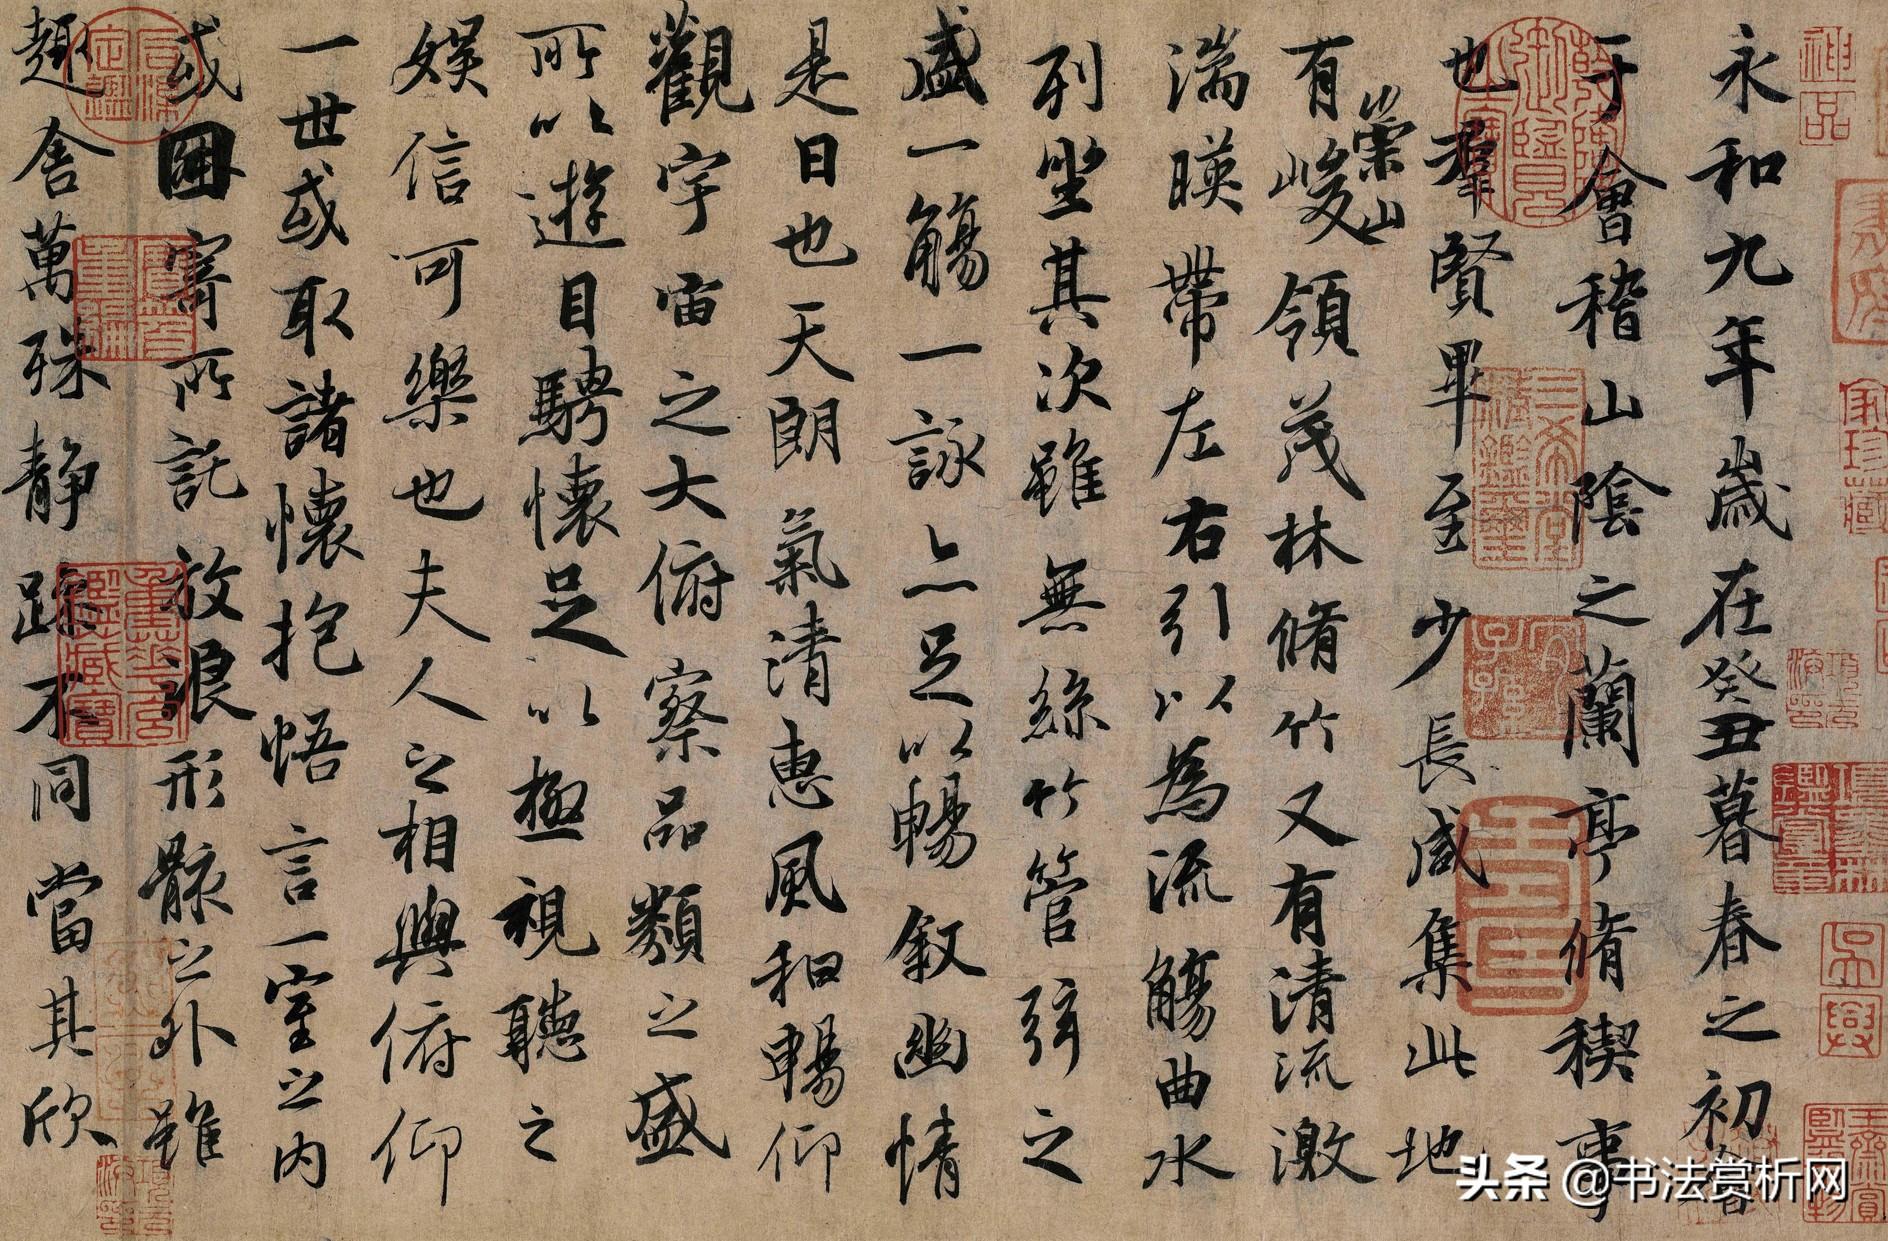 永和九年歲在癸丑暮春之初會
于會稽山陰之蘭亭脩稧事
也羣賢畢至少長咸集此地
有崇山峻領茂林脩竹又有清流激
湍暎帶左右引以為流觴曲水
列坐其次雖無絲竹管弦之
盛一觴一詠亦足以暢敘幽情
是日也天朗氣清惠風和暢仰
觀宇宙之大俯察品類之盛
所以遊目騁懷足以極視聽之
娛信可樂也夫人之相與俯仰
一世或取諸懷抱悟言一室之內
或因寄所託放浪形骸之外雖
趣舍萬殊静躁不同當其欣
神品
三希堂精鑑璽
宜子孫
石渠定鑑
寶笈重編
吳興
头条 @书法赏析网